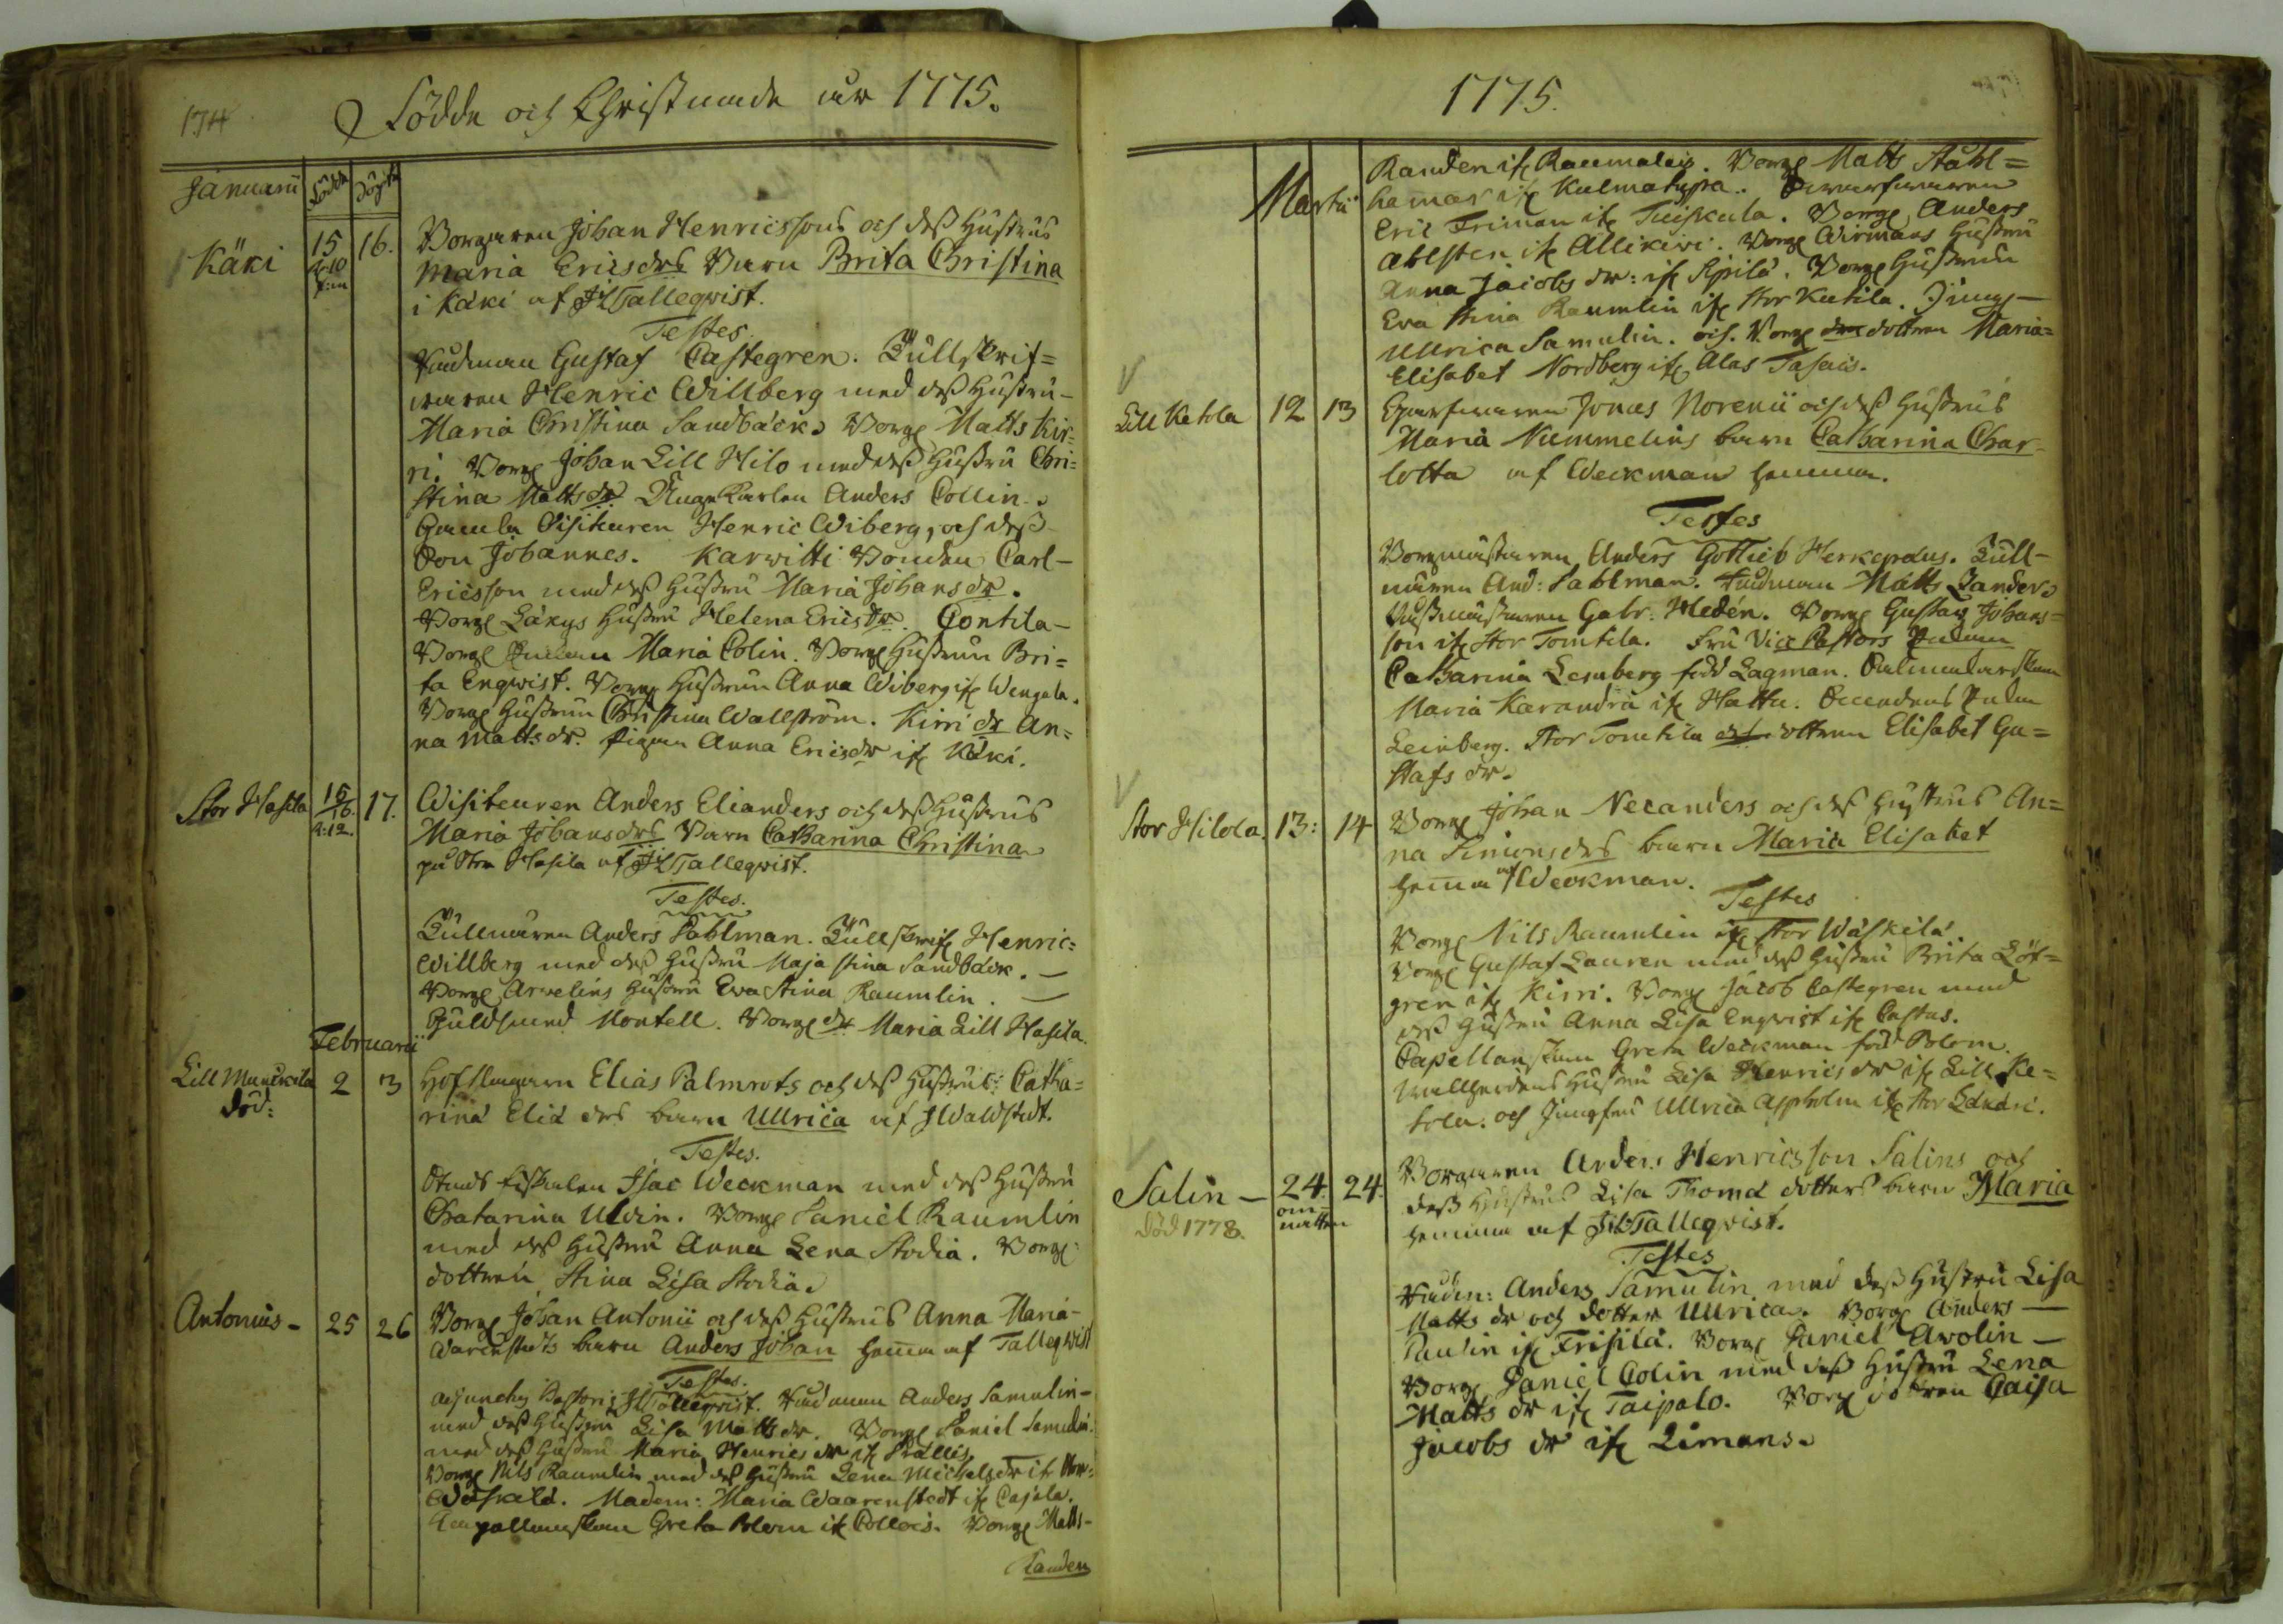 174
Födde och Christnade år 1775.
Januarii Födde Döpte
Käki 15 16. Borgaren Johan Henricssons och deß Hustrus
kl: 10 f:m Maria Ericsdrs Barn Brita Christina
i Käki af JH Tallegvist.
Testes.
Rådman Gustaf Castegren. Tullskrif=
waren Henric Willberg med deß Hustru
Maria Christina Sandbäck. Borg Matts Kir=
ri. Borg Johan Lill Hilo med deß Hustru Chri=
stina Mattsdr. Unge Karlen Anders Collin.
Gamla Visiteuren Henric Wiberg, och deß
Son Johannes. Karwitti Bonden Carl
Ericsson med deß Hustru Maria Johansdr.
Borg Hustru Helena Ericsdr. Contila
Borg Enkan Maria Colin. Borg Hustrun Bri=
ta Engwist. Borg Hustrun Anna Wiberg if Wengala.
Borg Hustrun Christina Wallström. Kirri dr An=
na Mattsdr. Pigan Anna Ericsdr if Käki.
Stor Hasila 15/16. 17. Wisiteuren Anders Elianders och deß Hustrus
k:12. Maria Johansdrs Barn Catharina Christina
på Stor Hasila af JH Tallegvist.
Testes.
Tullnären Anders Sahlman. Tullskrif Henric
Willberg med deß Hustru Maja Stina Sandbäck.
Borg Arwelins Hustru Ewa Stina Raumlin.
Guldsmed Montell. Borg dr Maria Lill Hasila.
Februarii
Lill Munckila 2 3 Hofslagarn Elias Palmrots och deß Hustrus: Catha=
död: rina Eliæ drs barn Ullrica af J Waldstedt.
Testes.
Stads Fiskalen Isac Weckman med deß Hustru
Chatarina Ulvin. Borg Daniel Raumlin
med deß Hustru Anna Lena Stodia. Borg
dottren Stina Lisa Stodia.
Antonius 25 26 Borg Johan Antonii och deß Hustrus Anna Maria
Warenstedts barn Anders Johan hemma af Tallegwist
Testes.
Adjunctus Pastoris JH Tallegvist. Rådman Anders Samulin
med deß Hustru Lisa Matts dr. Borg Daniel Samulin
med deß Hustru Maria Henrics dr if Kallis
Borg Nils Raumlin med deß Hustru Lena Michelsdr if Stor
Wäskilä. Madem: Maria Waarenstedt if Cajala.
Capellanskan Greta Polem if Collois. Borg Matts
Randen
1775.
Martii
Randen if Raumalais. Borg Matts Ståhl=
hamar if Kulmatypa. Garfwaren
Eric Friman if Tuiskula. Borg Anders
Ahlsten if Allikiwi. Borg Wirmans Hustru
Anna Jacobs dr: if Sipilä. Borg Hustrun
Eva Stina Raumlin if Stor Kutila. Jungf
Ullrica Samulin. och. Borg dottren Maria
Elisabet Nordberg if Alas Tasais.
Lill Ketola 12 13 Garfwaren Jonas Norenii och deß Hustrus
Maria Nummelins barn Catharina Char=
lotta af Weckman hemma.
Testes
Borgmästaren Anders Gottlieb Herkepæus. Tull=
nären And: Sahlman. Rådman Matts Zander.
Gabr: Hedén. Borg Gustav Johans=
son if Stor Tomtila. Fru Vice Pastors Enkan
Catharina Lernberg född Lagman.
Maria Karandra if Hattu.
Leinberg. Stor Tomtila dottren Elisabet Gu=
stafs dr.
Stor Hilola. 13: 14 Borg Johan Necanders och deß Hustrus An=
na Simonsdrs barn Maria Elisabet
hemma af Weckman.
Testes
Borg Nils Raumlin if Stor Wäskilä.
Borg Gustaf Lauren med deß Hustru Brita Löf=
gren if Kirri. Borg Jacob Castegren med
deß Hustru Anna Lisa Engvist if Castus.
Capellanskan Greta Weckman född Polem.
Hustru Lisa Henrics dr if Lill Ke=
tola. och Jungfru Ullrica Aspholm if Stor Lackari.
Salin 24. 24. Borgaren Anders Henricsson Salins och
om natten deß Hustrus Lisa Thomæ dotters barn Maria
död 1778. hemma af JH Tallegvist.
Testes
Rådm: Anders Samulin med deß Hustru Lisa
Matts dr och dotter Ullrica. Borg Anders
Paulin if Frisila. Borg Daniel Awolin
Borg Daniel Colin med deß Hustru Lena
Matts dr if Taipalo. Borg dottren Caisa
Jacobs dr if Limans.